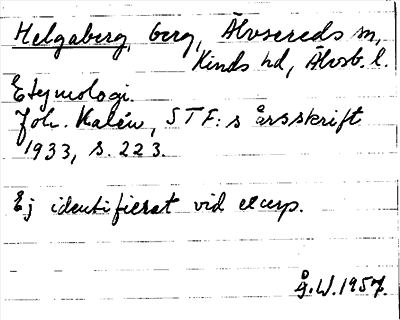 Helgaberg, berg, Älvsereds sn,
Kinds hd, Älvsb. l.
Etymologi.
Joh. Kalén, STF:s årsskrift
1933, s. 223.
Ej identifierat vid excerp.
Å.W. 1957.